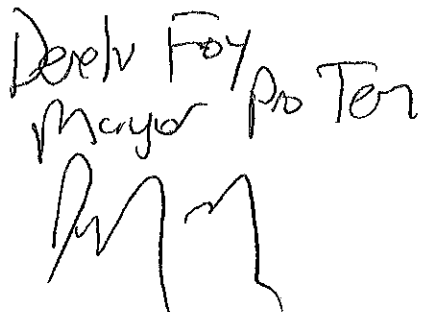 Derek Foy
Mayor Pro Tem